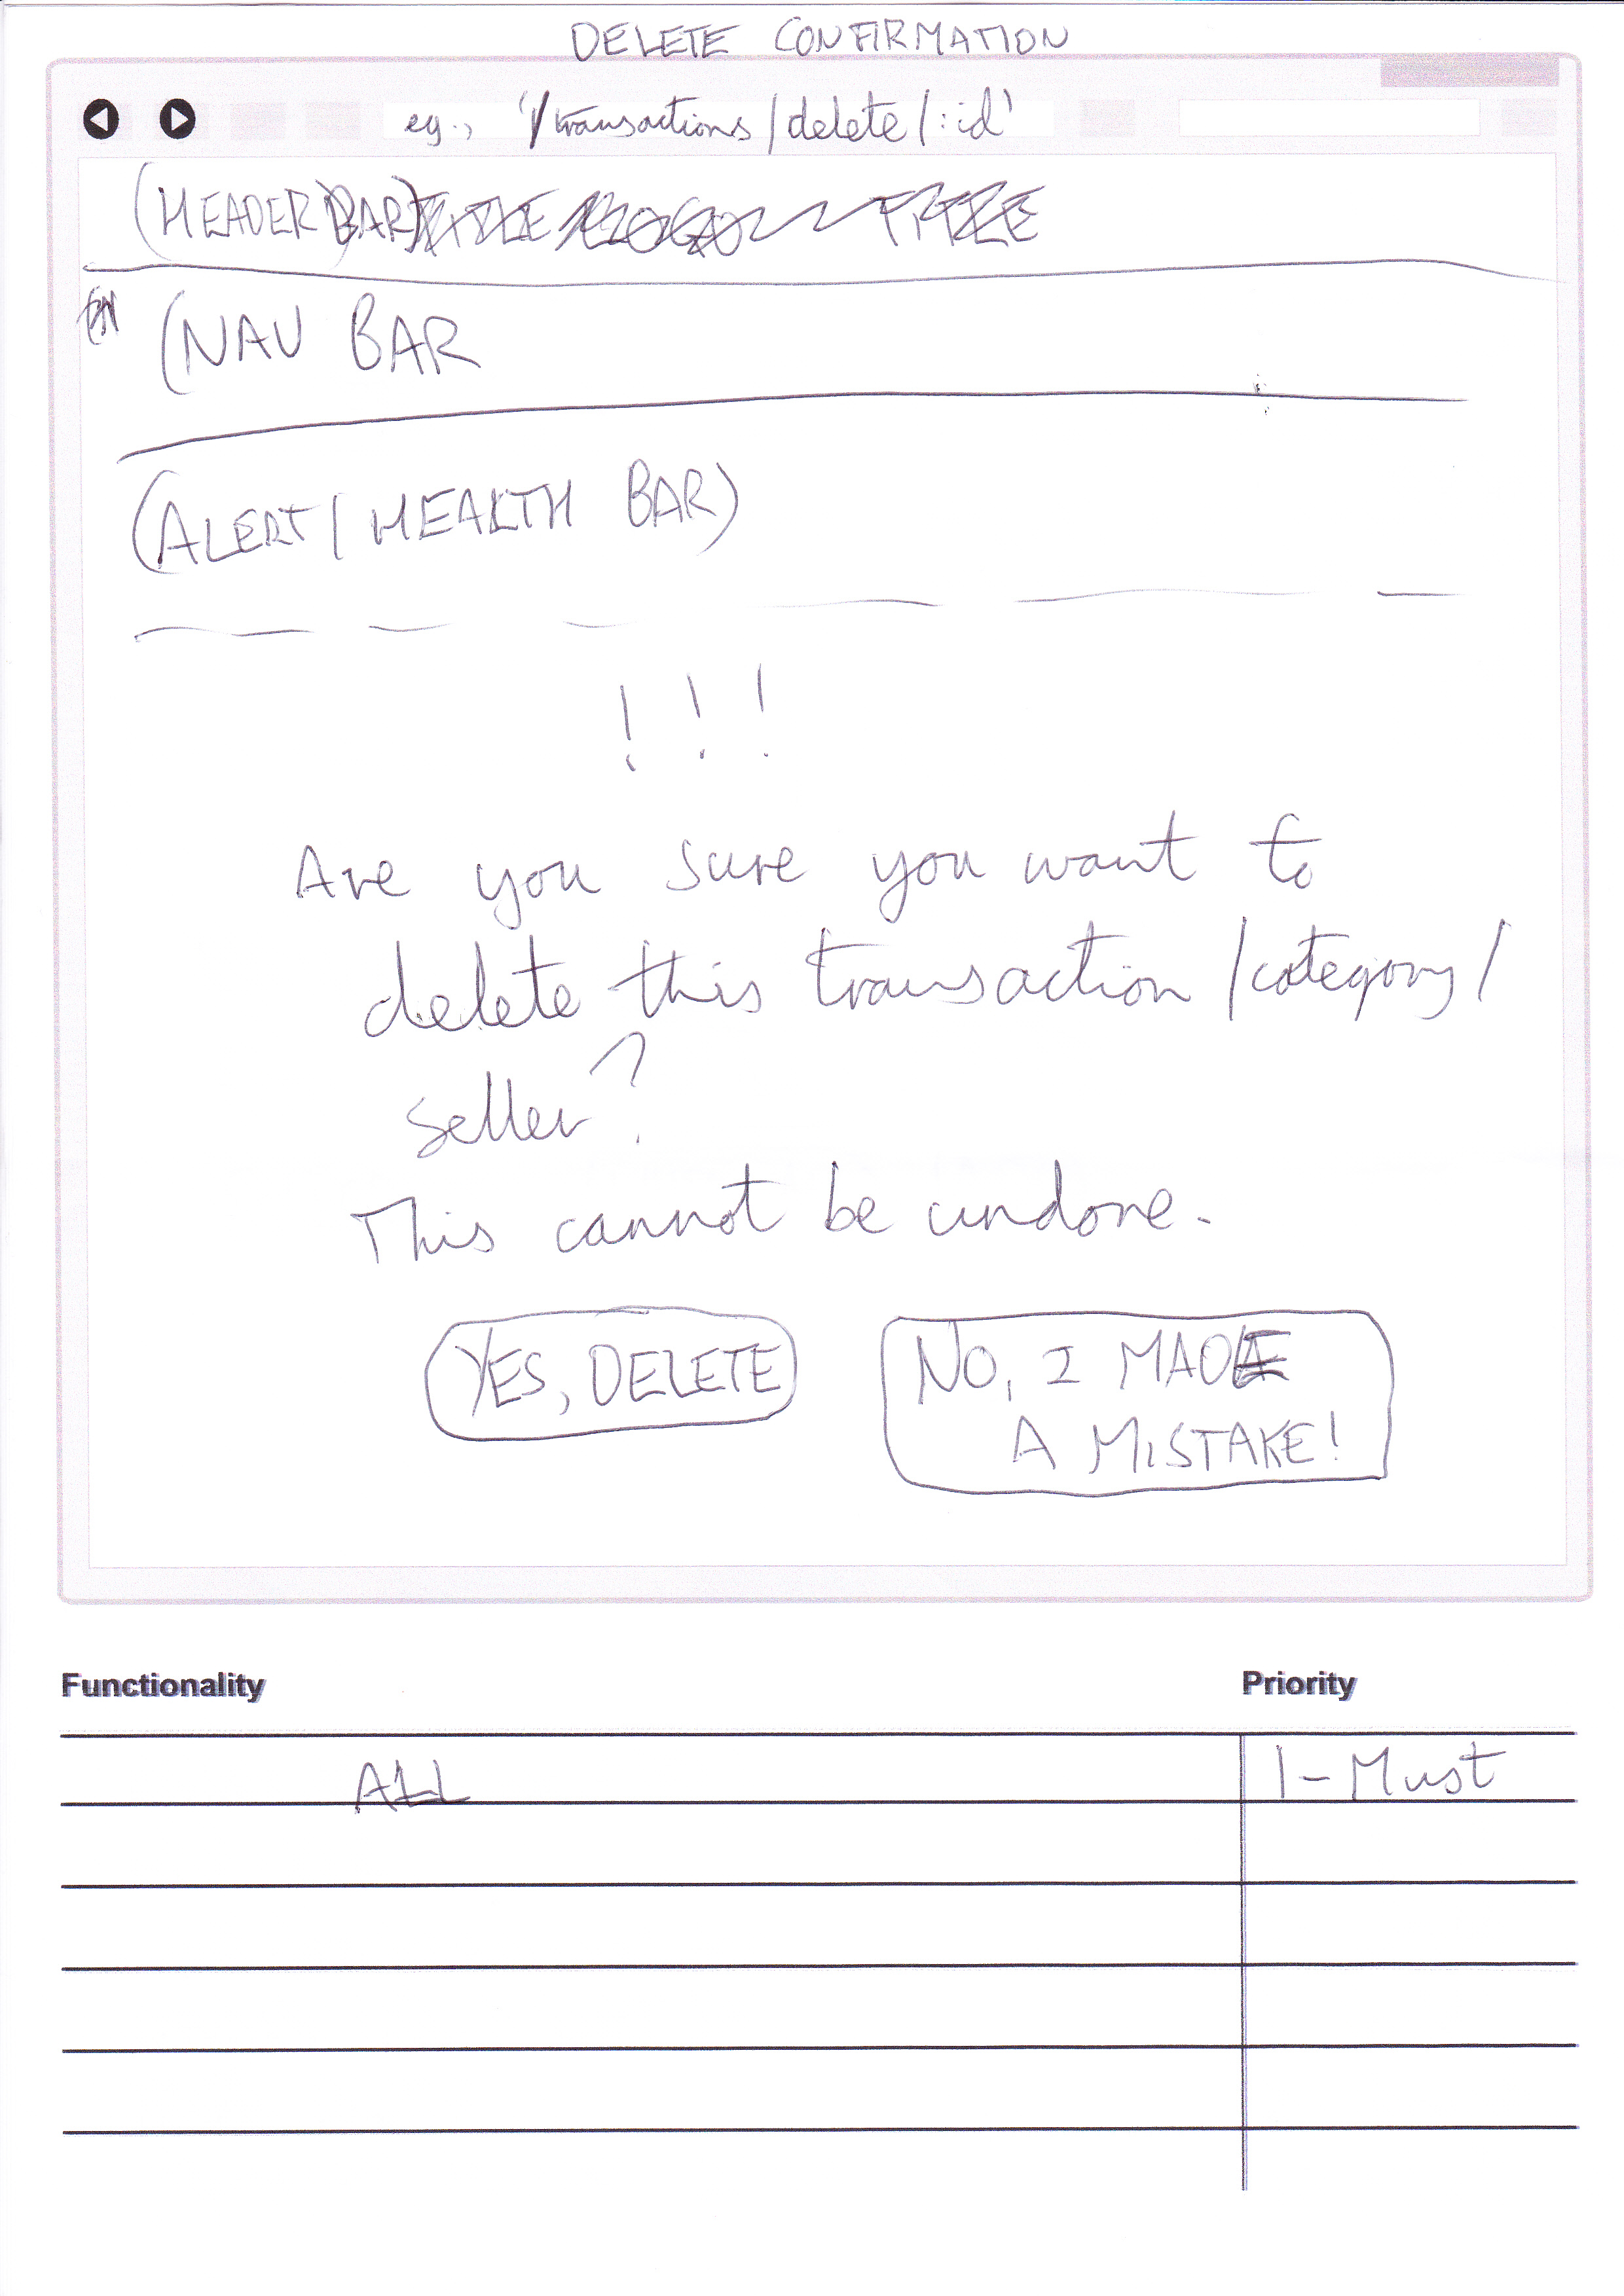 DELETE CONFIRMATION
eg., '/transactions/delete/:id'
(HEADER BAR)
(NAV BAR
(ALERT/HEALTH BAR)
! ! !
Are you sure you want to
delete this transaction/category/
seller?
This cannot be undone.
YES, DELETE
NO, I MADE
A MISTAKE!
Functionality Priority
ALL 1-Must